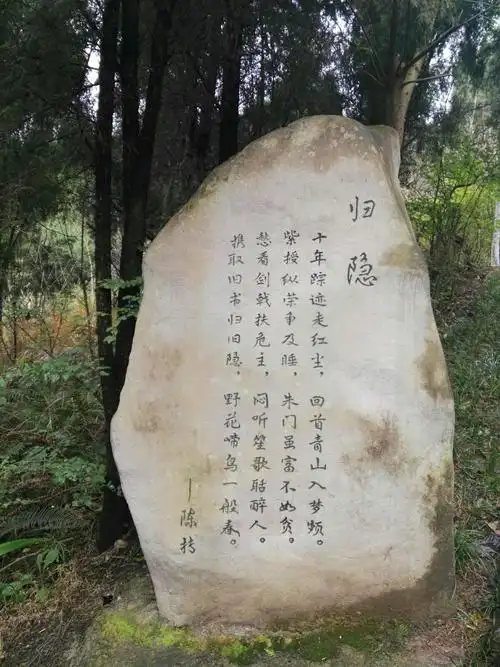 归隐
十年踪迹走红尘，回首青山入梦频。
紫授纵荣争及睡，朱门虽富不如贫。
愁看剑戟扶危主，闷听笙歌聒醉人。
携取旧书归旧隐，野花啼鸟一般春。
—陈抟